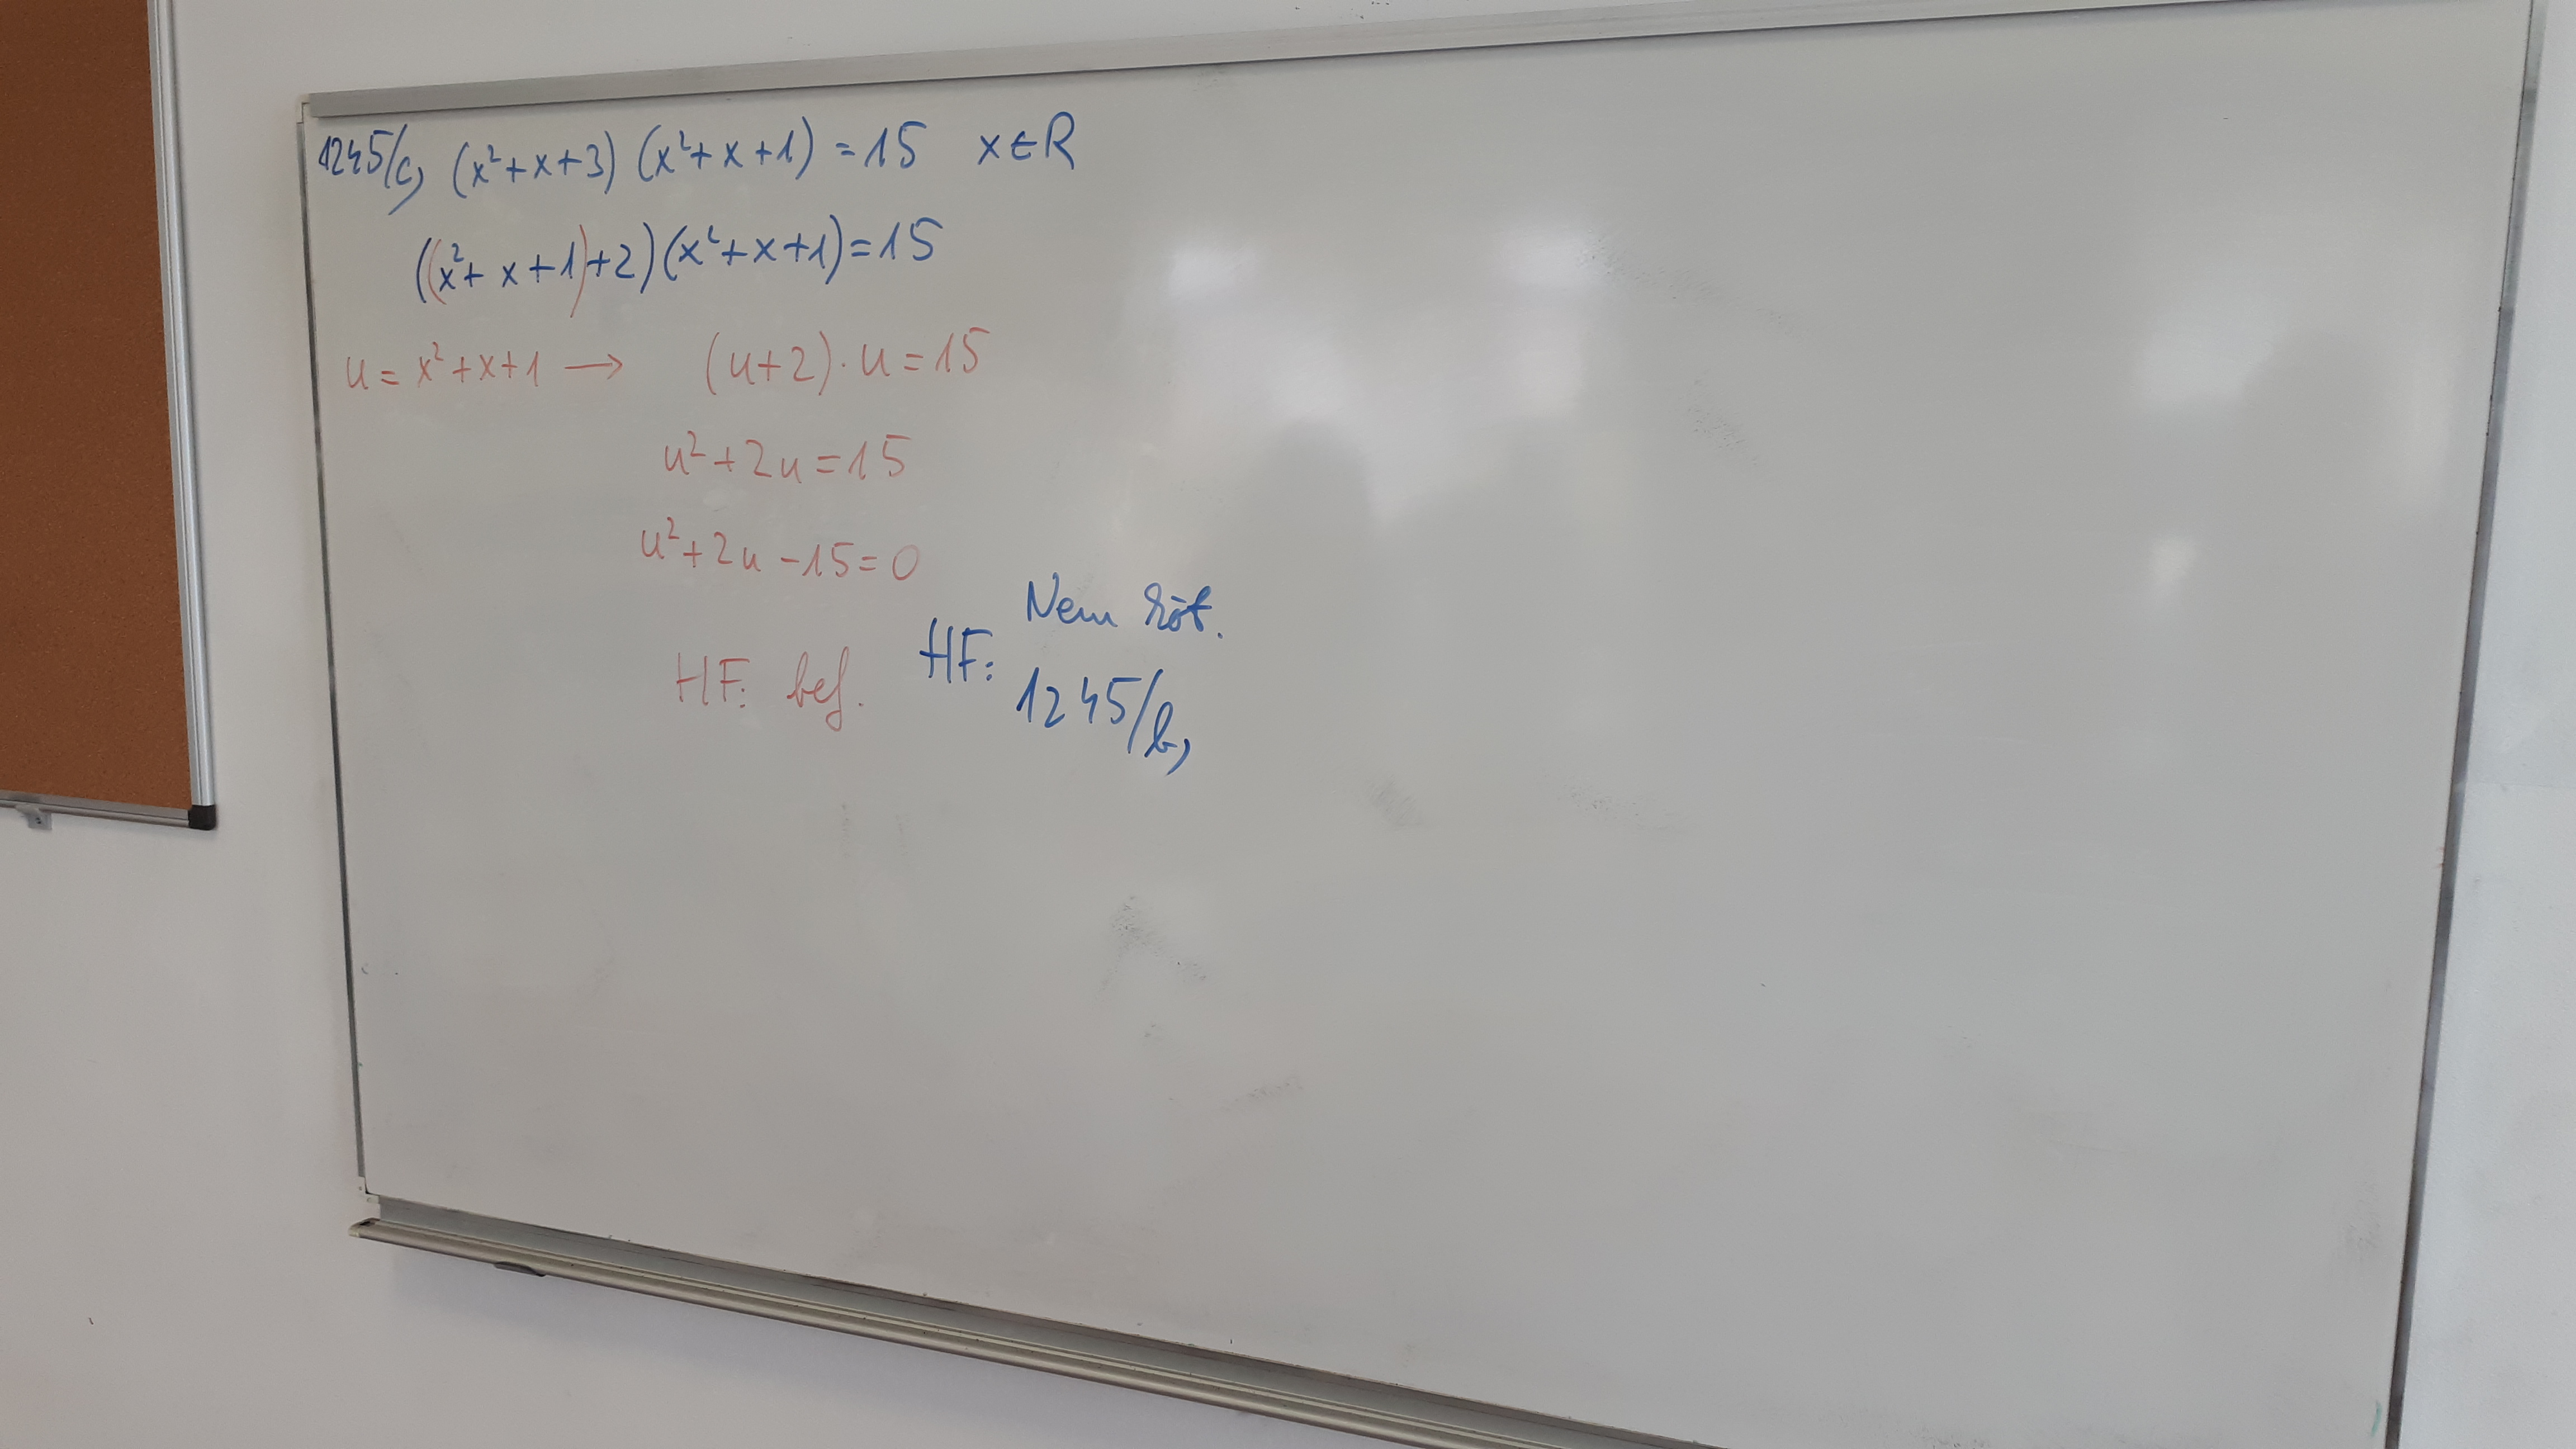 1245/c, (x²+x+3) (x²+x+1) = 15 x∈R
((x²+x+1)+2)(x²+x+1)=15
u = x²+x+1 → (u+2)·u=15
u²+2u=15
u²+2u-15=0
HF: bef.
Nem köt.
HF: 1245/b,